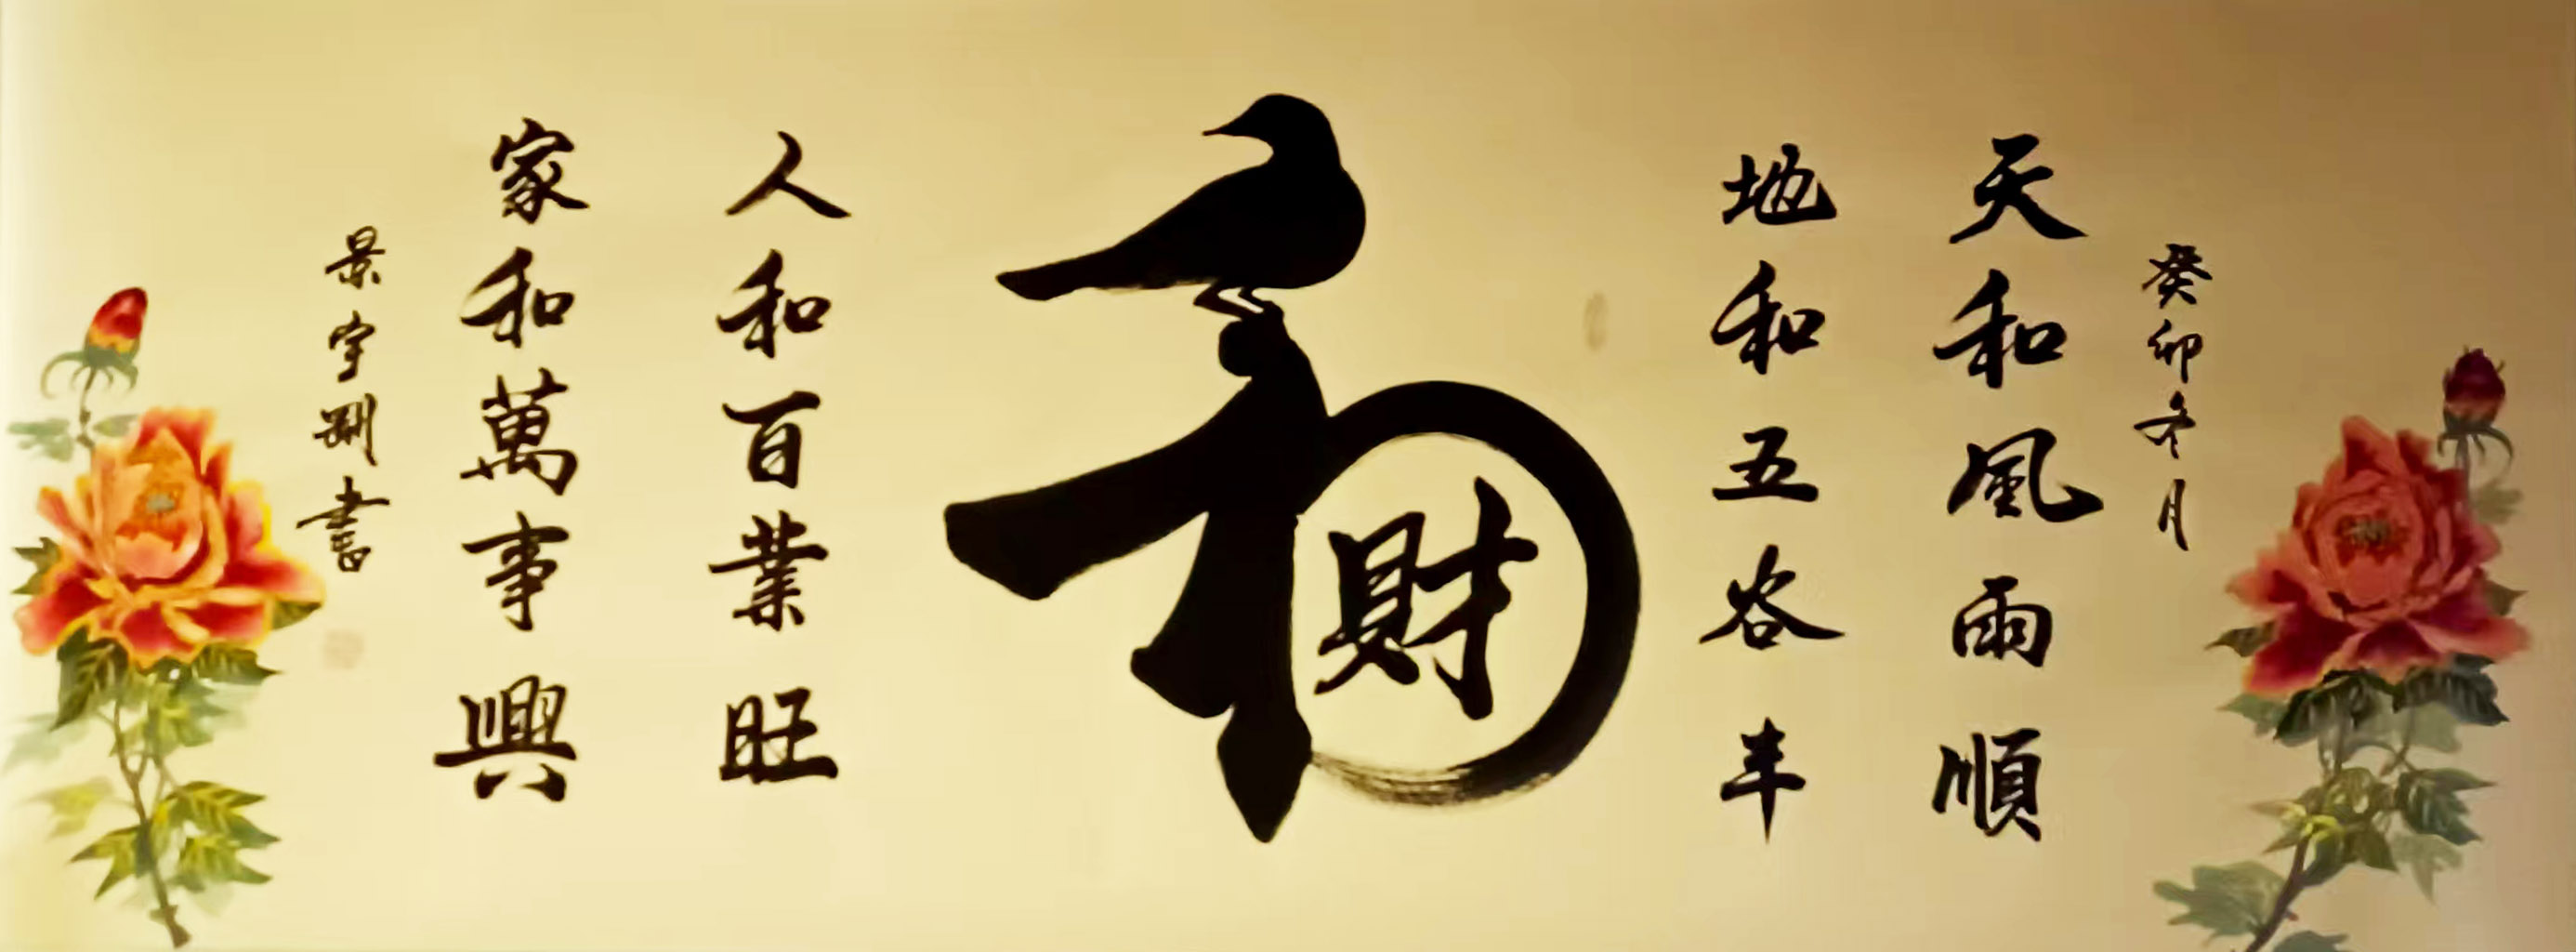 癸卯冬月
天和風雨順
地和五谷丰
和
財
人和百業旺
家和萬事興
景宇剛書